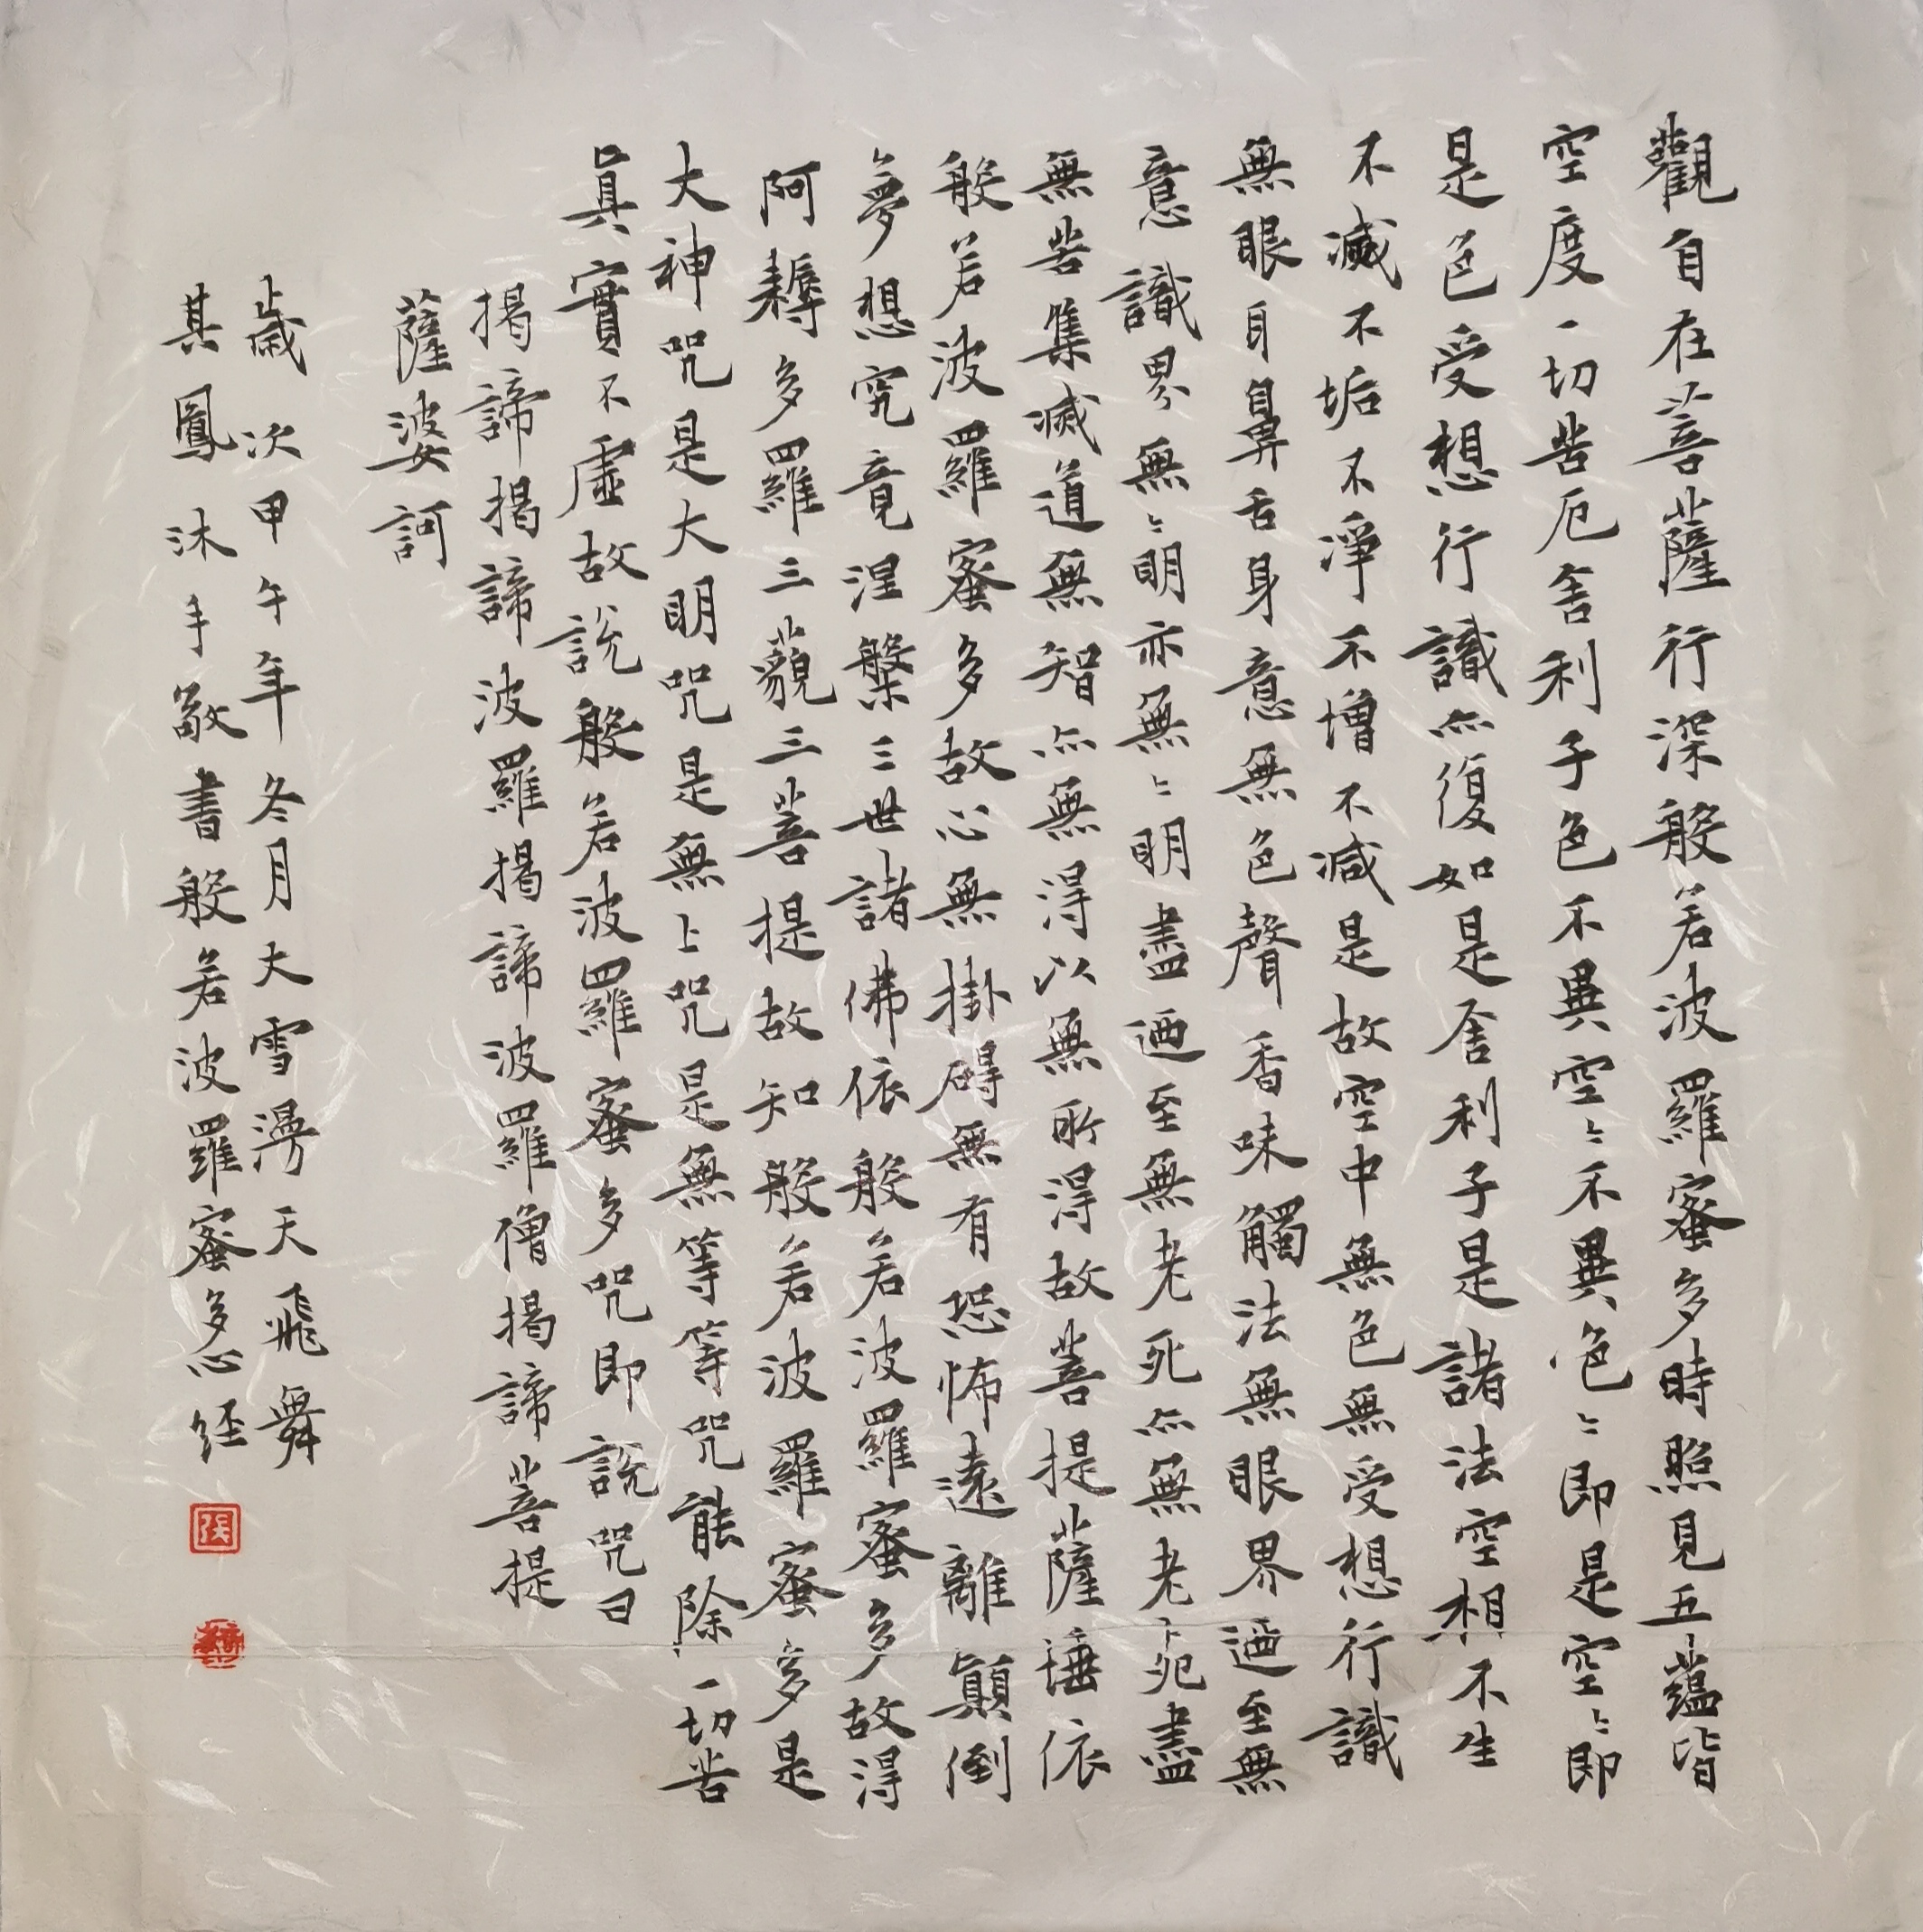 觀自在菩薩行深般若波羅蜜多時照見五蘊皆
空度一切苦厄舍利子色不異空〻不異色〻即是空〻即
是色受想行識亦復如是舍利子是諸法空相不生
不滅不垢不淨不增不減是故空中無色無受想行識
無眼耳鼻舌身意無色聲香味觸法無眼界廼至無
意識界無〻明亦無〻明盡廼至無老死亦無老死盡
無苦集滅道無智亦無得以無所得故菩提薩埵依
般若波羅蜜多故心無掛碍無有恐怖遠離顛倒
夢想究竟涅槃三世諸佛依般若波羅蜜多故得
阿耨多羅三藐三菩提故知般若波羅蜜多是
大神咒是大明咒是無上咒是無等等咒能除一切苦
真實不虛故說般若波羅蜜多咒即說咒曰
揭諦揭諦波羅揭諦波羅僧揭諦菩提
薩婆訶
歲次甲午年冬月大雪漫天飛舞
其鳳沐手敬書般若波羅蜜多心經
張